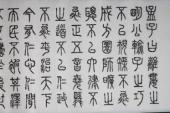 孟子曰離婁之
明公輸子之巧
不以規矩不能
成方員師曠之
聰不以六律不
能正五音堯舜
之道不以仁政
不能平治天下
今有仁心仁聞
而民不被其澤